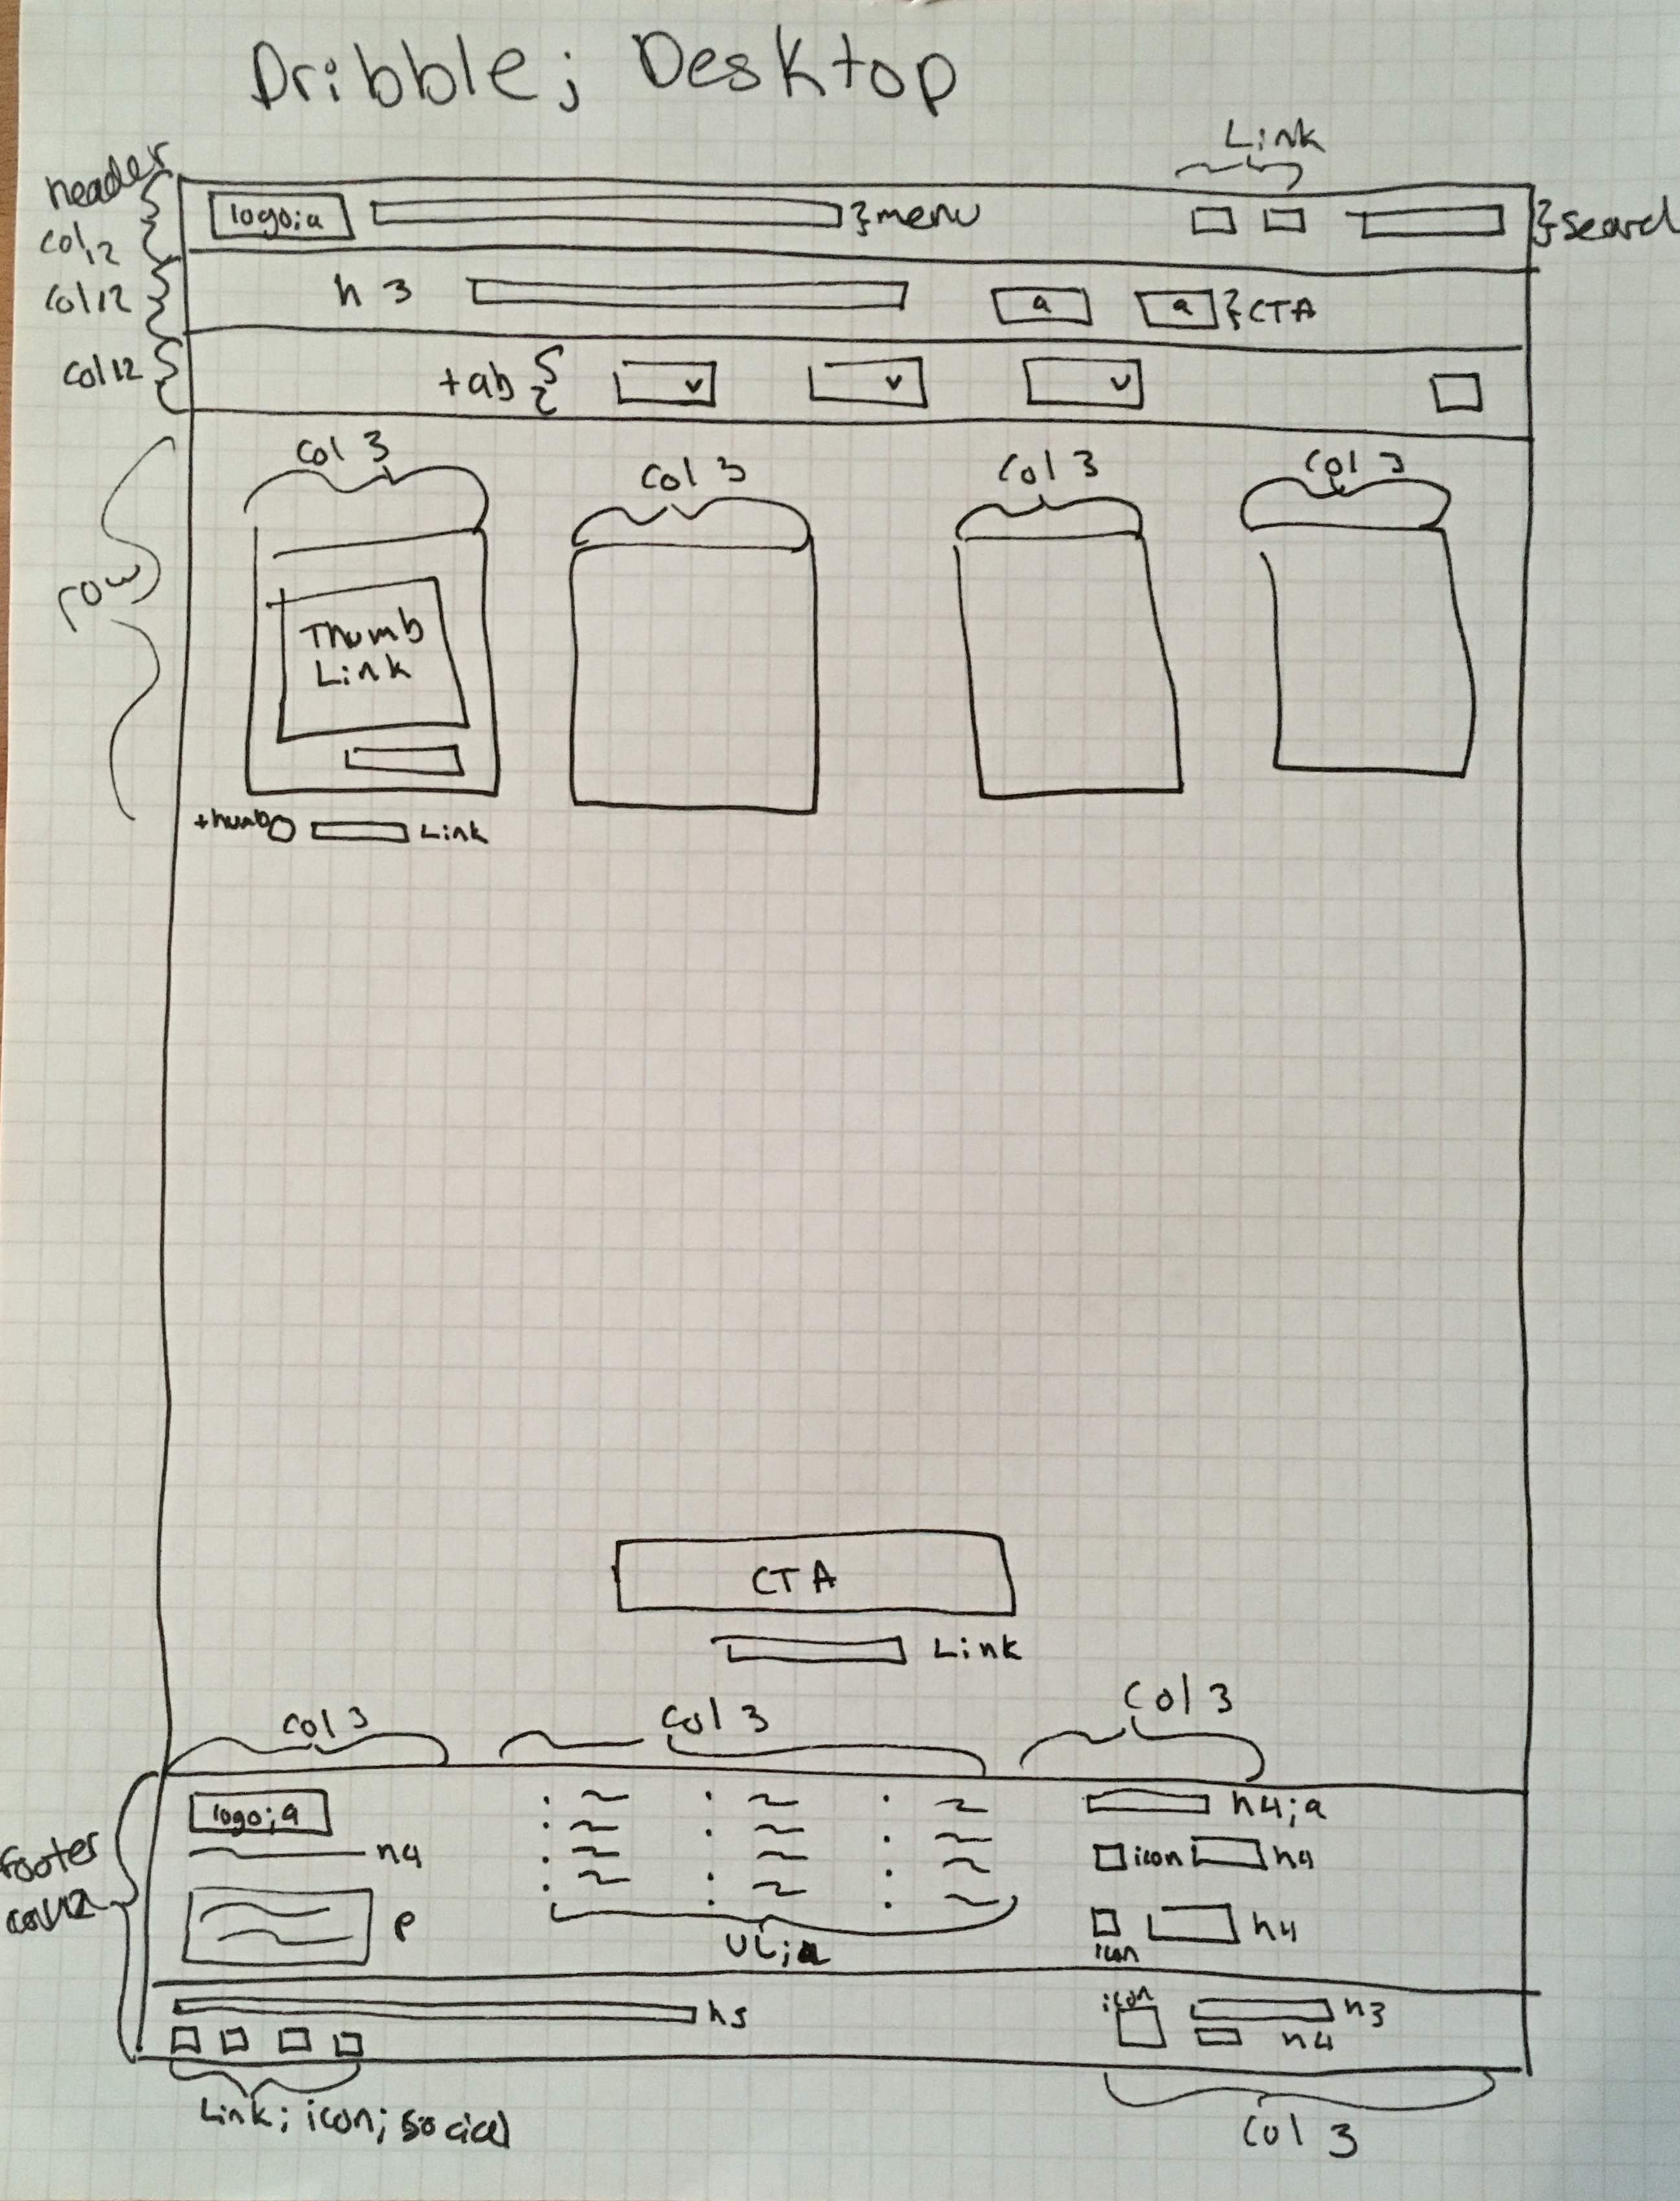 Dribble; Desktop
Link
header
logo;a
}menu
}search
col12
h 3
a
a
}CTA
col12
tab
v
v
v
col12
col 3
col 3
col 3
col 3
row
Thumb
Link
thumb
Link
CTA
Link
col 3
col 3
col 3
footer
col12
logo;a
h4
p
UL;a
h4;a
icon
h4
icon
h4
h5
icon
h3
h4
Link; icon; social
col 3